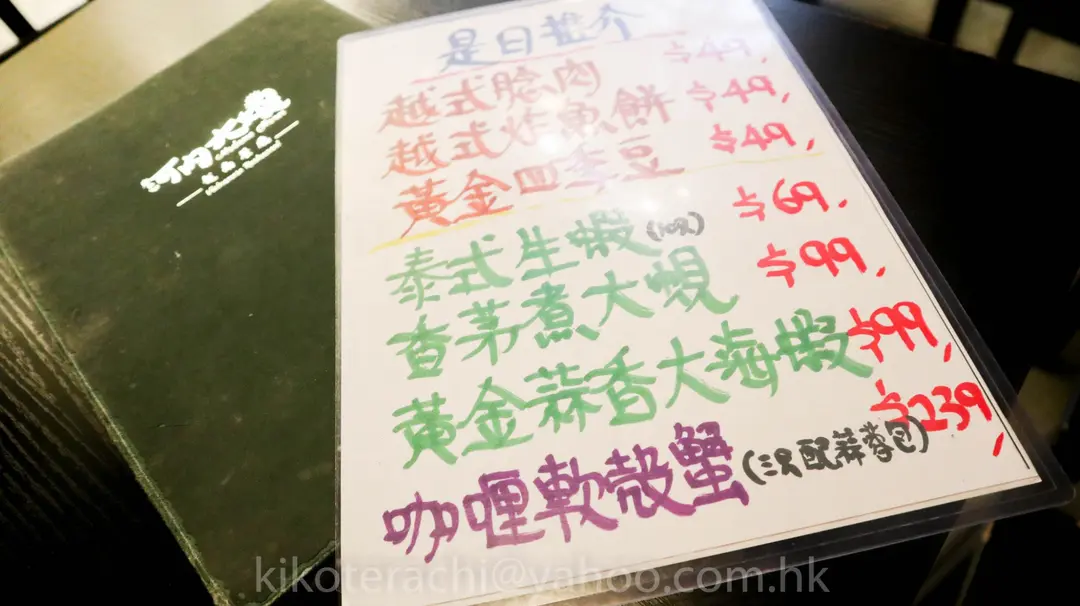 河內大
是日推介
越式 肉 $49,
越式炸魚餅 $49,
黃金四季豆 $49,
泰式生蝦 $69.
香茅煮大蜆 $99,
黃金蒜香大海蝦 $99,
咖喱軟殼蟹 (三只配蒜蓉包) $239,
kikoterachi@yahoo.com.hk